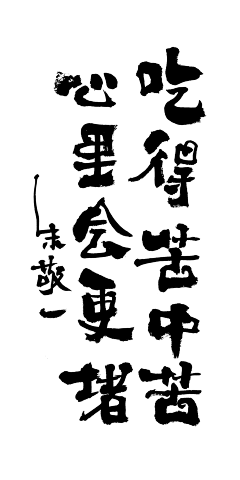 吃得苦中苦
心里会更堵
朱敬一